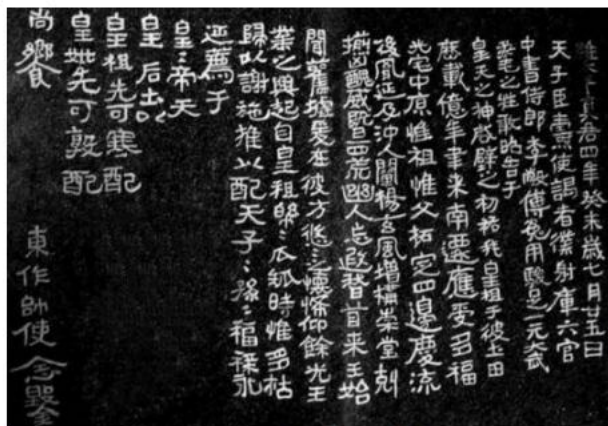 維太平真君四年癸未歲七月廿五日
天子臣燾使謁者僕射庫六官
中書侍郎李敞傅㝹用駿足一元大武
柔毛之牲敢昭告于
皇天之神啓辟之初祐我皇祖于彼土田
歷載億年聿來南遷應受多福
光宅中原惟祖惟父拓定四邊慶流
後胤延及沖人闡揚玄風增構崇堂剋
揃凶醜威暨四荒幽人忘遐稽首来王始
聞舊墟爰在彼方悠〻之懷希仰餘光王
業之興起自皇祖綿〻瓜瓞時惟多祜
歸以謝施推以配天子〻孫〻福祿永
延薦于
皇〻帝天
皇〻后土以
皇祖先可寒配
皇妣先可敦配
尚饗
東作帥使念鑿